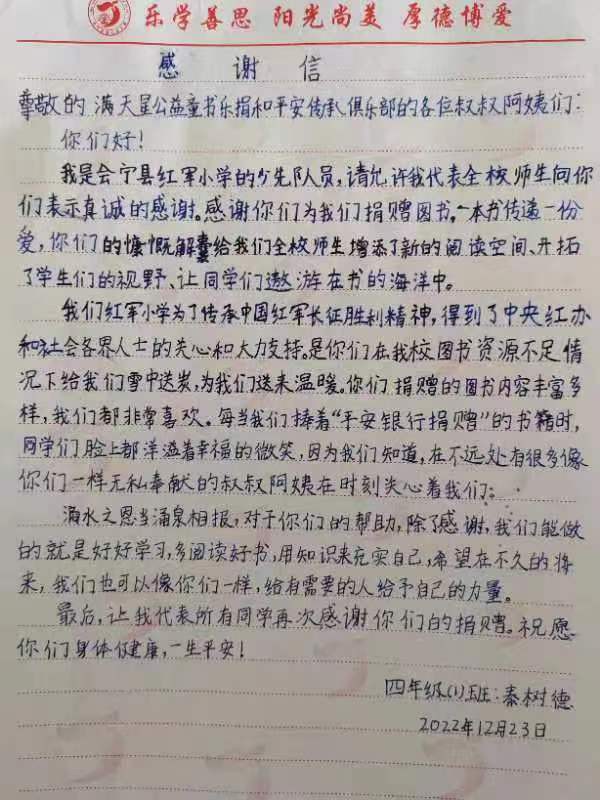 乐学善思 阳光尚美 厚德博爱
感 谢 信
尊敬的 满天星公益童书乐捐和平安传承俱乐部的各位叔叔阿姨们:
你们好!
我是会宁县红军小学的少先队员,请允许我代表全校师生向你
们表示真诚的感谢。感谢你们为我们捐赠图书,一本书传递一份
爱,你们的慷慨解囊给我们全校师生增添了新的阅读空间、开拓
了学生们的视野、让同学们遨游在书的海洋中。
我们红军小学为了传承中国红军长征胜利精神,得到了中央红办
和社会各界人士的关心和大力支持。是你们在我校图书资源不足情
况下给我们雪中送炭,为我们送来温暖。你们捐赠的图书内容丰富多
样,我们都非常喜欢。每当我们捧着“平安银行捐赠”的书籍时,
同学们脸上都洋溢着幸福的微笑,因为我们知道,在不远处有很多像
你们一样无私奉献的叔叔阿姨在时刻关心着我们;
滴水之恩当涌泉相报,对于你们的帮助,除了感谢,我们能做
的就是好好学习,多阅读好书,用知识来充实自己,希望在不久的将
来,我们也可以像你们一样,给有需要的人给予自己的力量。
最后,让我代表所有同学再次感谢你们的捐赠。祝愿
你们身体健康,一生平安!
四年级(1)班:秦树德
2022年12月23日